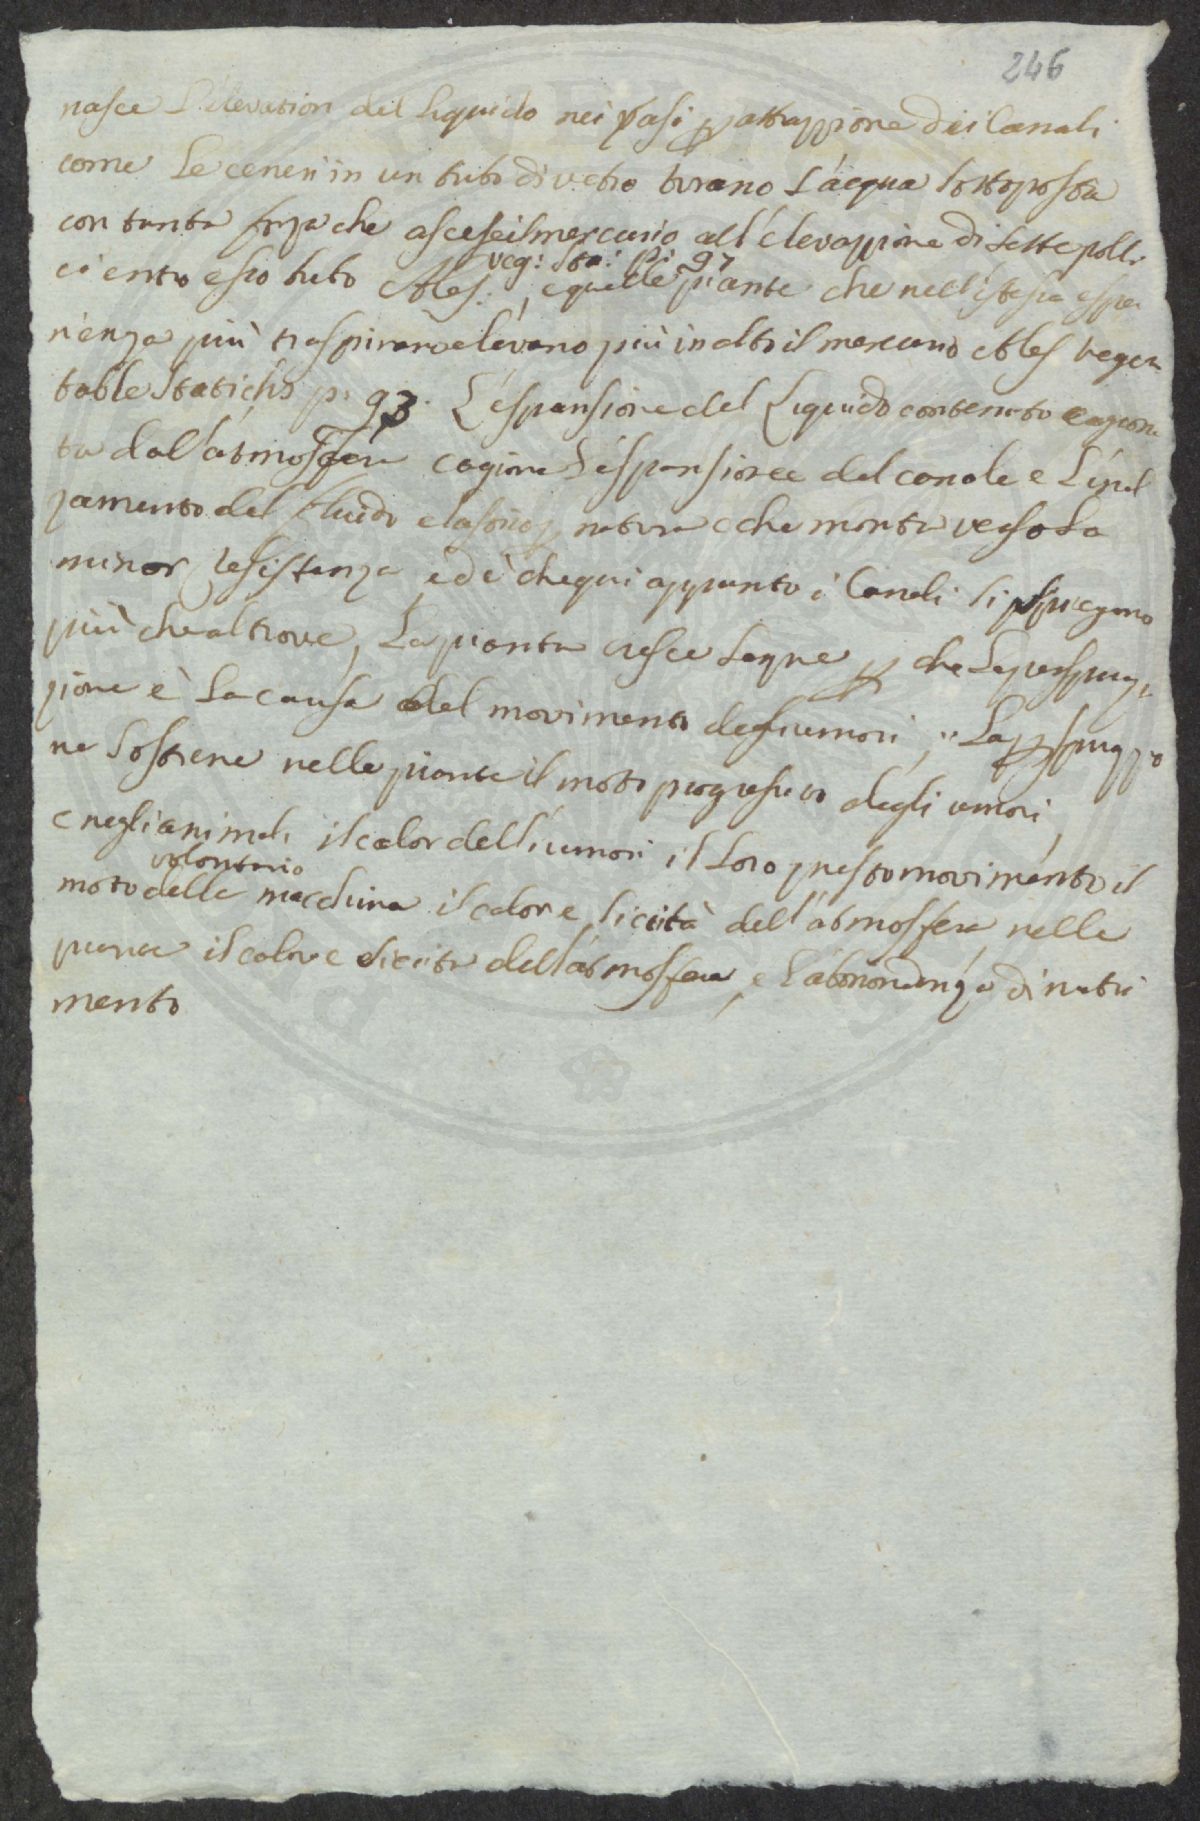 246
nasce L'elevation del liquido nei vasi p attrazzione dei Canali
come Le ceneri in un tubo di vetro tirano L'acqua sottoposta
con tanta forza che ascese il mercurio all'elevazzione di sette polli
veg: Sta: p: 97
ci entro esso tubo Ales: , e quelle piante che nell'istessa espe
rienza più traspirano elevano più in alto il mercurio Ales vege
table Statichs p: 93. L'espansione del Liquido contenuto cagiona
ta dall'atmosfera cagiona L'espansione del canale e L'inal
zamento del fluido elastico p natura che monta verso La
minor resistenza, ed è che qui appunto i Canali si spiegano
più che altrove, La pianta cresce segue p che La perspira
zione è La causa del movimento degli umori, " La perspirazzio
ne sostiene nelle piante il moto progressivo degli umori,
e negli animali il calor dell'umori il Loro presto movimento il
volontario
moto della macchina il calor e siccità dell'atmosfera, nelle
piante il calor e siccità dell'atmosfera, e L'abbondanza di nutri
mento